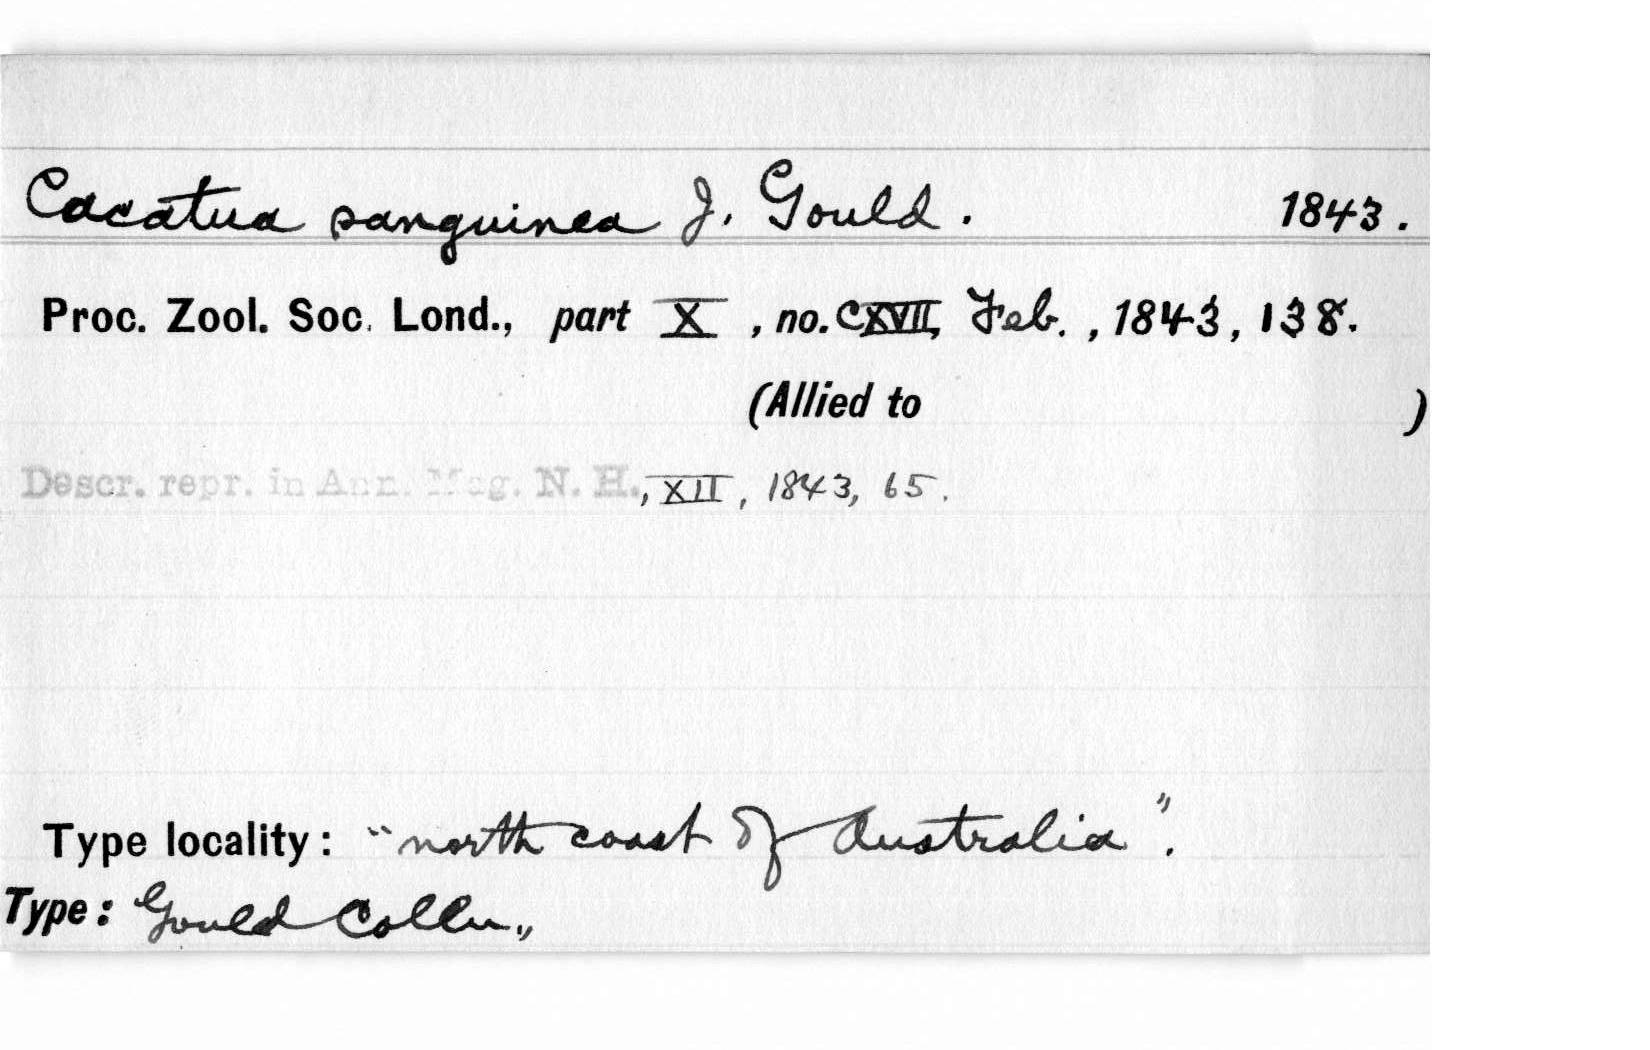 Cacatua sanguinea J. Gould. 1843.
Proc. Zool. Soc. Lond., part X, no. CXVII, Feb., 1843, 138.
(Allied to )
Descr. repr. in Ann. Mag. N. H., XII, 1843, 65.
Type locality: "north coast of Australia".
Type: Gould Colln.,